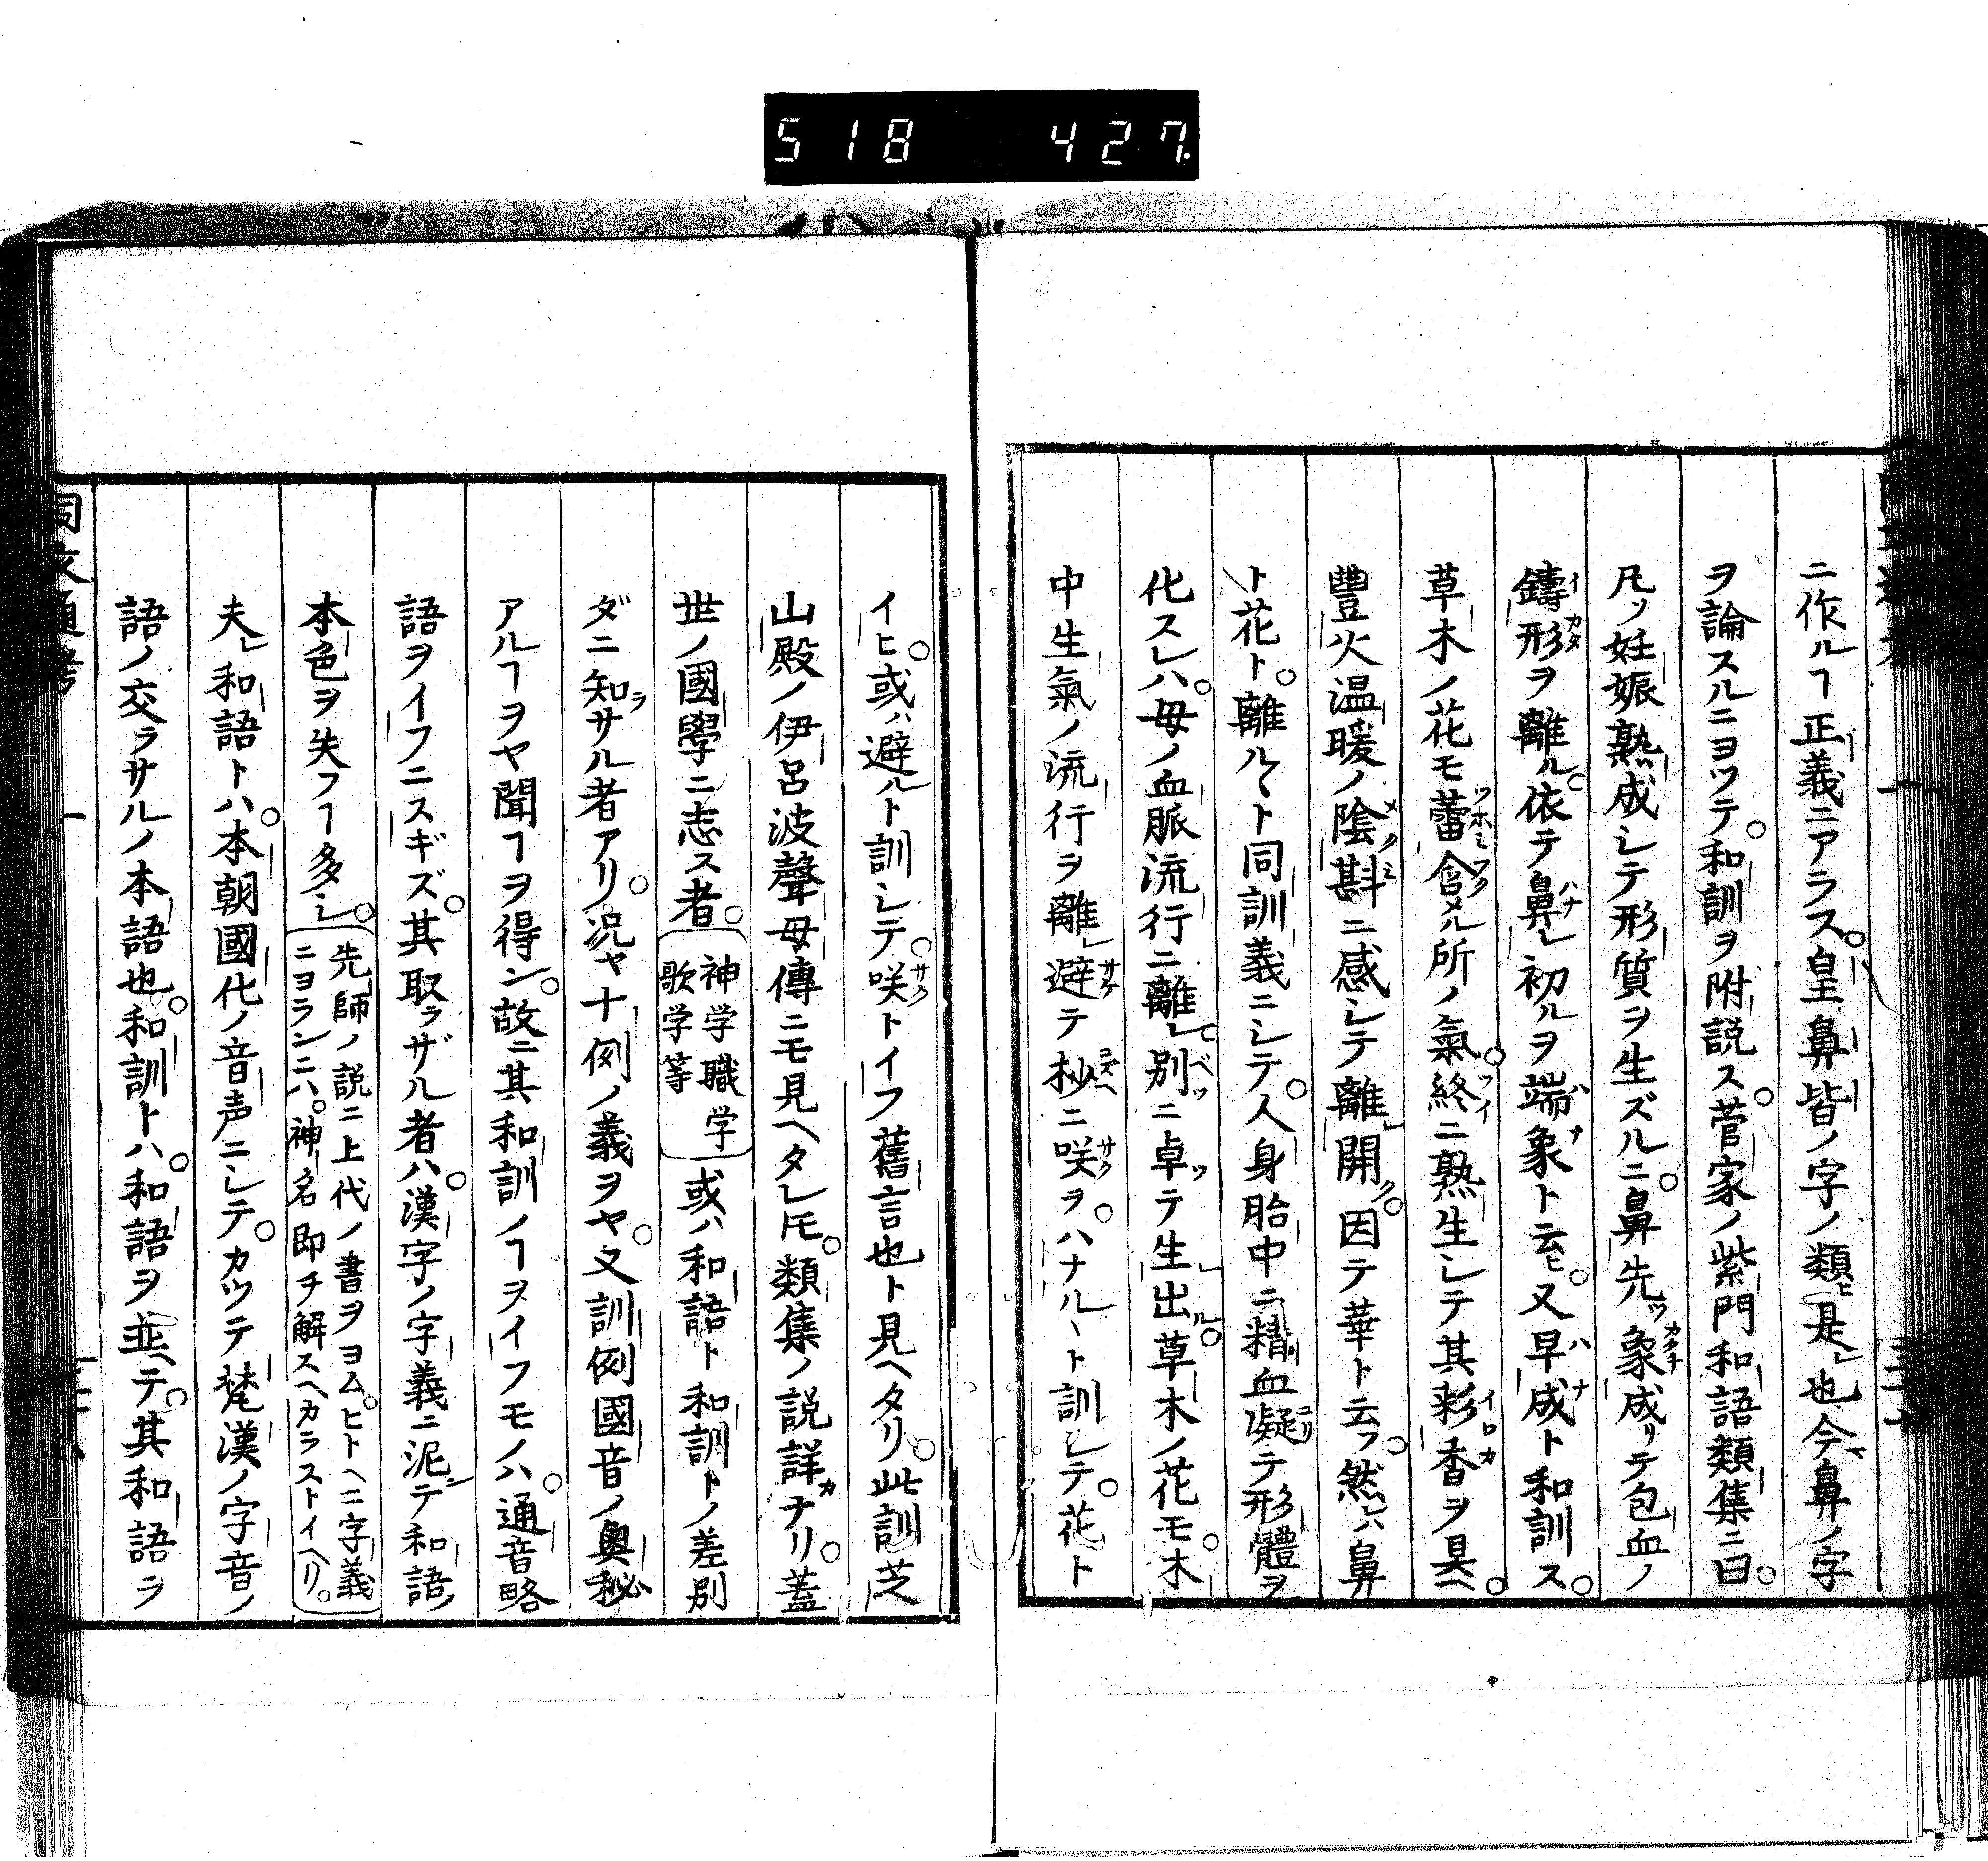 518 427
ニ作ルヿ正義ニアラス。皇鼻皆ノ字ノ類ヒ是レ也今マ鼻ノ字
ヲ論スルニヨツテ。和訓ヲ附説ス。菅家ノ紫門和語類集ニ曰。
凡ソ妊娠熟成シテ形質ヲ生ズルニ。鼻先ツ象成リテ包血ノ
鑄形ヲ離ル。依テ鼻レ初ルヲ端象ト云ヒ。又早成ト和訓ス。
草木ノ花モ蕾含メル所ノ氣。終ニ熟生シテ其彩香ヲ具ヘ。
豐火温暖ノ陰斟ニ感シテ離レ開ク。因テ華ト云フ。然レハ鼻
ト花ト。離ルヽト同訓義ニシテ。人身胎中ニ精血凝テ形體ヲ
化スレハ。母ノ血脈流行ニ離レ。別ニ卓テ生レ出ル。草木ノ花モ。木
中生氣ノ流行ヲ離レ避テ杪ニ咲ヲ。ハナルヽト訓シテ。花ト
イヒ。或ハ避ルト訓シテ。咲トイフ舊言也ト見ヘタリ。此訓芝
山殿ノ伊呂波聲母傳ニモ見ヘタレ𪜈。類集ノ説詳カナリ。蓋
世ノ國學ニ志ス者。神学職学歌学等或ハ和語ト和訓トノ差別
ダニ知ラサル者アリ。况ヤ十例ノ義ヲヤ。又訓例國音ノ奥秘
アルヿヲヤ聞ヿヲ得ン。故ニ其和訓ノヿヲイフモノハ。通音略
語ヲイフニスギズ。其取ラザル者ハ。漢字ノ字義ニ泥テ和語ノ
本色ヲ失フヿ多シ。先師ノ説ニ上代ノ書ヲヨム。ヒトヘニ字義ニヨランニハ。神名即チ解スヘカラストイヘリ。
夫レ和語トハ。本朝國化ノ音声ニシテ。カツテ梵漢ノ字音ノ
語ノ交ラサルノ本語也。和訓トハ。和語ヲ並ヘテ。其和語ラ